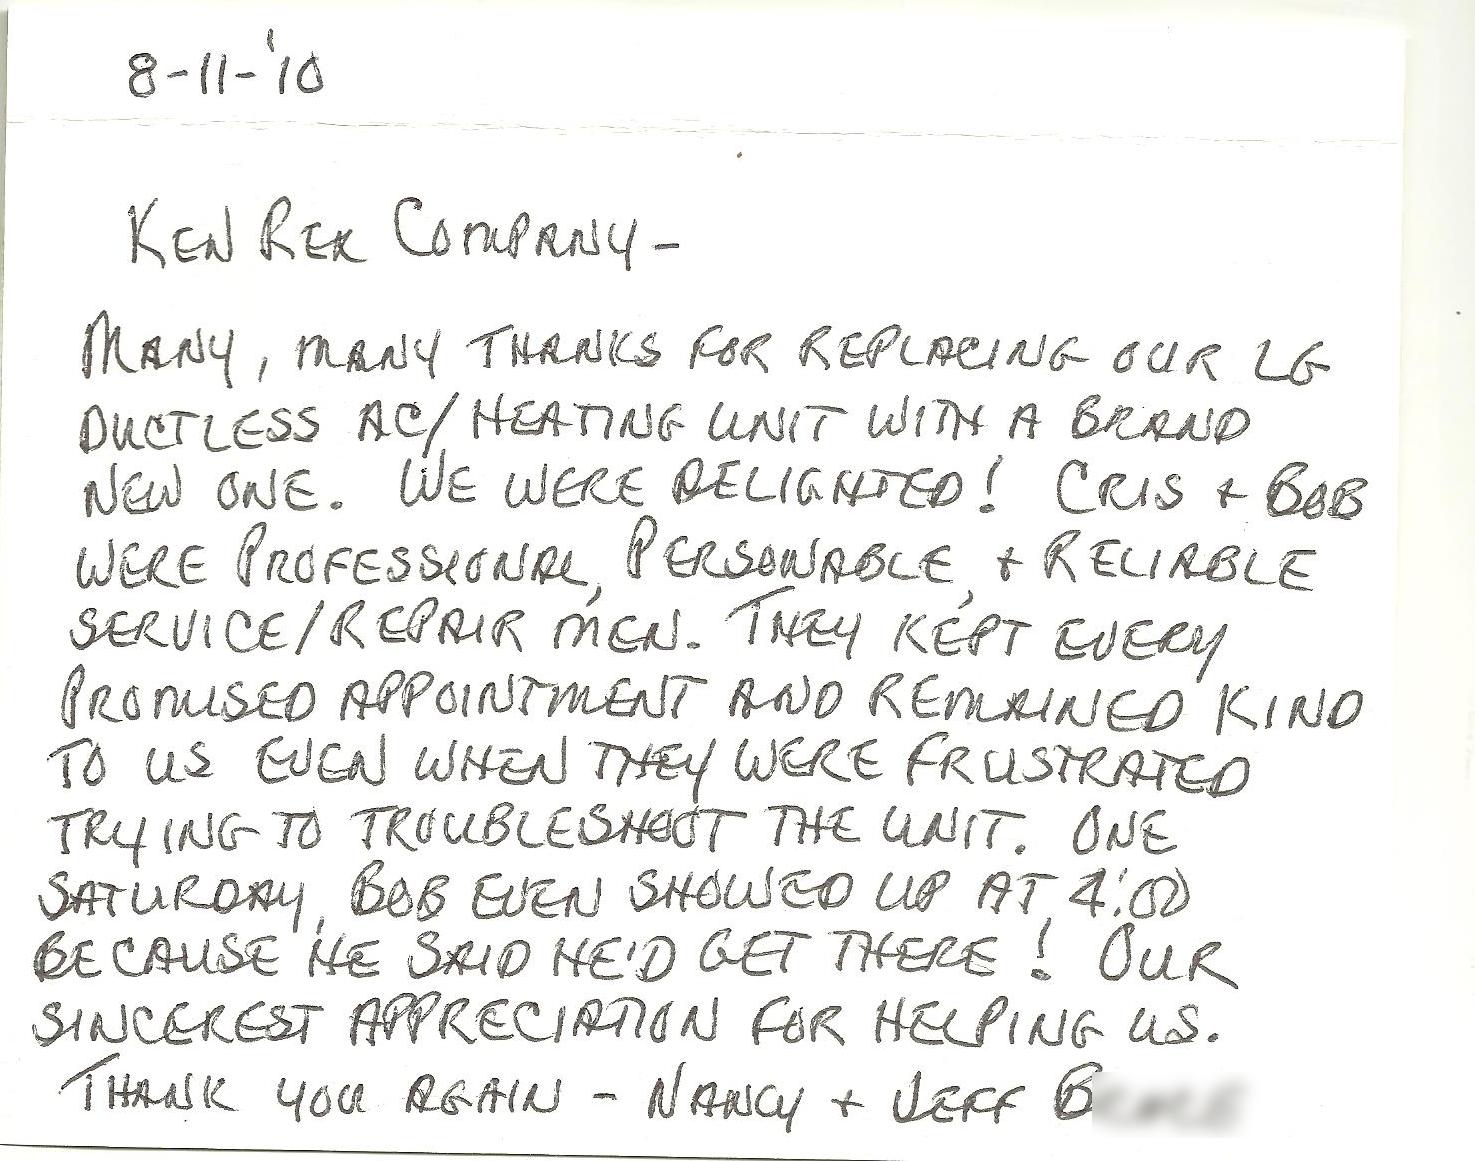 8-11-'10
KEN REX COMPANY-
MANY, MANY THANKS FOR REPLACING OUR LG
DUCTLESS AC/HEATING UNIT WITH A BRAND
NEW ONE. WE WERE DELIGHTED! CRIS + BOB
WERE PROFESSIONAL, PERSONABLE, + RELIABLE
SERVICE/REPAIR MEN. THEY KEPT EVERY
PROMISED APPOINTMENT AND REMAINED KIND
TO US EVEN WHEN THEY WERE FRUSTRATED
TRYING TO TROUBLESHOOT THE UNIT. ONE
SATURDAY, BOB EVEN SHOWED UP AT 4:00
BECAUSE HE SAID HE'D GET THERE! OUR
SINCEREST APPRECIATION FOR HELPING US.
THANK YOU AGAIN - NANCY + JEFF B